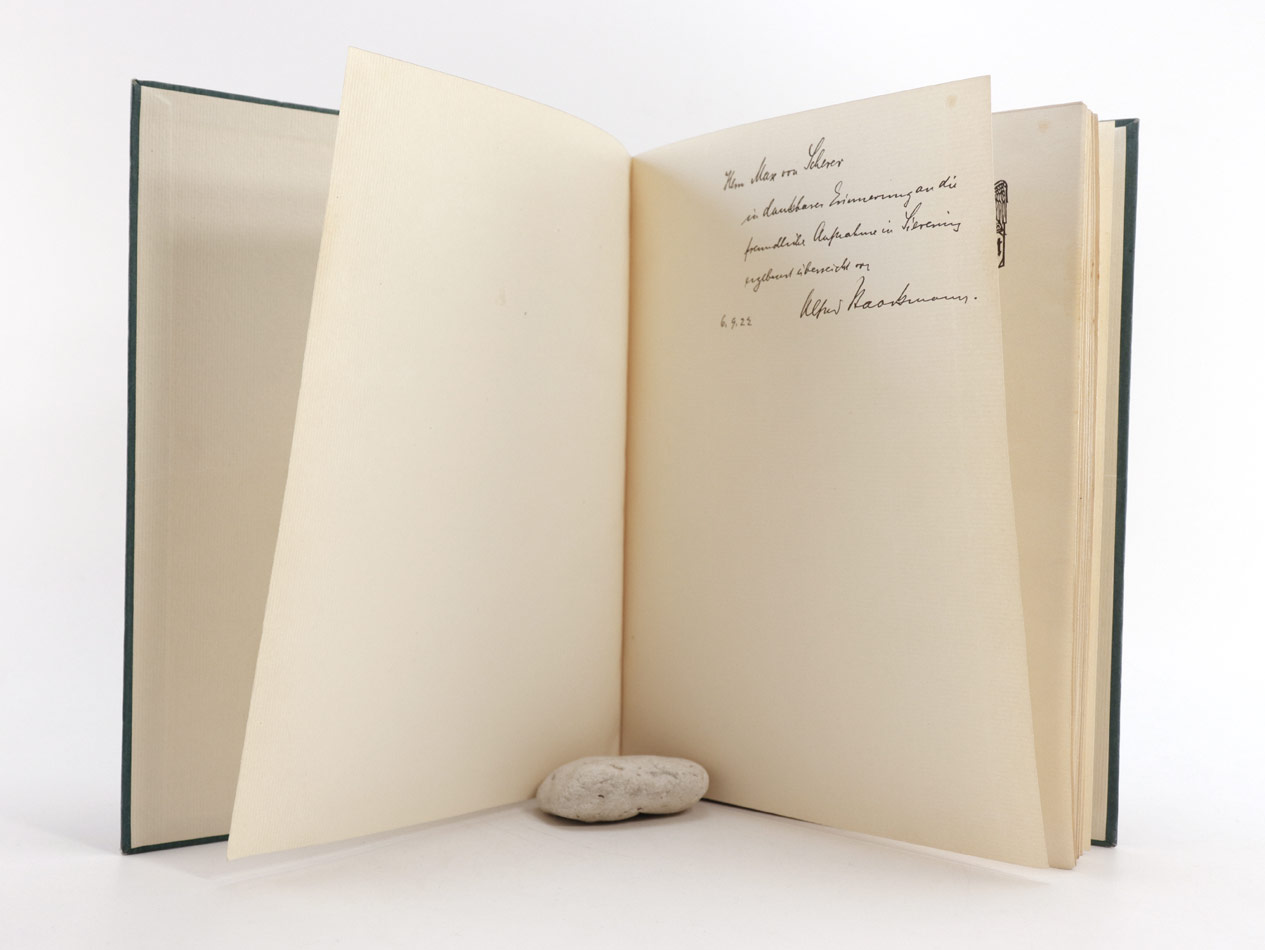 Herrn Max von Scherer
in dankbarer Erinnerung an die
freundliche Aufnahme in Sievering
ergebenst überreicht von
Alfred
6.9.22